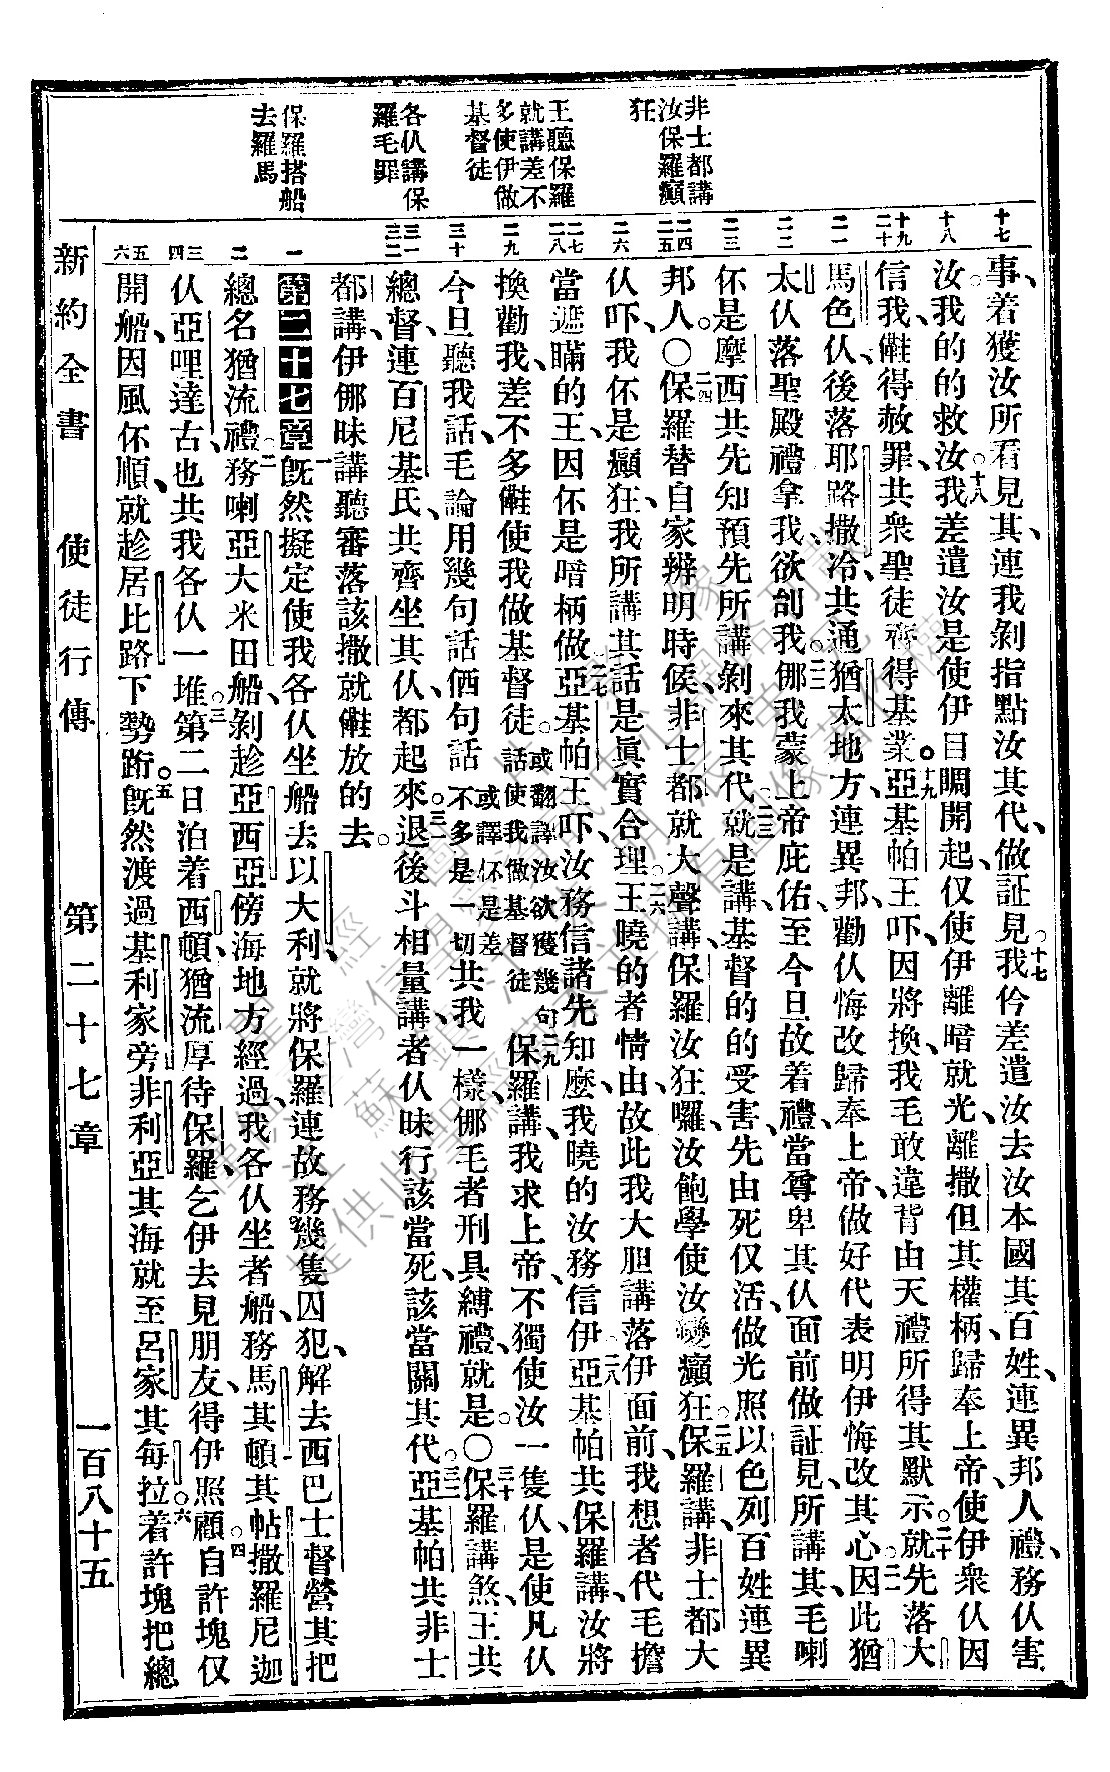 非士都講
汝保羅癲
狂
王聽保羅
就講差不
多使伊做
基督徒
各仈講保
羅毛罪
保羅搭船
去羅馬
十七
十八
十九
二十
二一
二二
二三
二四
二五
二六
二七
二八
二九
三十
三一
三二
一
二
三
四
五
六
事、着獲汝所看見其、連我剝指點汝其代、做証見。十七我仱差遣汝去汝本國其百姓、連異邦人禮、務仈害
汝。我的的救汝。十八我差遣汝是使伊目瞯開起、仅使伊離暗就光、離撒但其權柄、歸奉上帝、使伊衆仈因
信我、㑚得赦罪、共衆聖徒齊得基業。十九亞基帕王吓、因將換我毛敢違背由天禮所得其默示。二十就先落大
馬色仈、後落耶路撒冷、共通猶太地方、連異邦、勸仈悔改歸奉上帝、做好代表明伊悔改其心。二一因此猶
太仈落聖殿禮拿我、欲刣我。二二㑚我蒙上帝庇佑、至今旦故着禮、當尊卑其仈面前做証見、所講其、毛喇
伓是摩西共先知預先所講剝來其代。二三就是講、基督的的受害、先由死仅活、做光照以色列百姓連異
邦人。〇二四保羅替自家辨明時候、非士都就大聲講、保羅、汝狂囉、汝飽學使汝變癲狂。二五保羅講、非士都大
仈吓、我伓是癲狂、我所講其話是眞實合理。二六王曉的者情由、故此我大胆講落伊面前、我想者代毛擔
當遮瞞的王、因伓是暗柄做。二七亞基帕王吓、汝務信諸先知麼、我曉的汝務信伊。二八亞基帕共保羅講、汝將
換勸我、差不多㑚使我做基督徒。或翻譯汝欲獲幾句話使我做基督徒二九保羅講、我求上帝、不獨使汝一隻仈、是使凡仈
今旦聽我話、毛論用幾句話俖句話或譯伓是差不多是一切共我一樣、㑚毛者刑具縛禮就是。〇三十保羅講煞、王共
總督、連百尼基氏、共齊坐其仈、都起來。三一退後斗相量講、者仈昧行該當死、該當關其代。三二亞基帕共非士
都講、伊㑚昧講聽審落該撒、就㑚放的去。
第二十七章一旣然擬定使我各仈坐船去以大利、就將保羅連故務幾隻囚犯、解去西巴士督營其把
總名猶流禮。二務喇亞大米田船、剝趁亞西亞傍海地方經過、我各仈坐者船、務馬其頓其帖撒羅尼迦
仈亞哩達古、也共我各仈一堆。三第二日泊着西頓、猶流厚待保羅、乞伊去見朋友、得伊照顧。四自許塊仅
開船、因風伓順、就趁居比路下勢䟓。五旣然渡過基利家旁非利亞其海、就至呂家其每拉。六着許塊把總
新約全書　使徒行傳　第二十七章　一百八十五